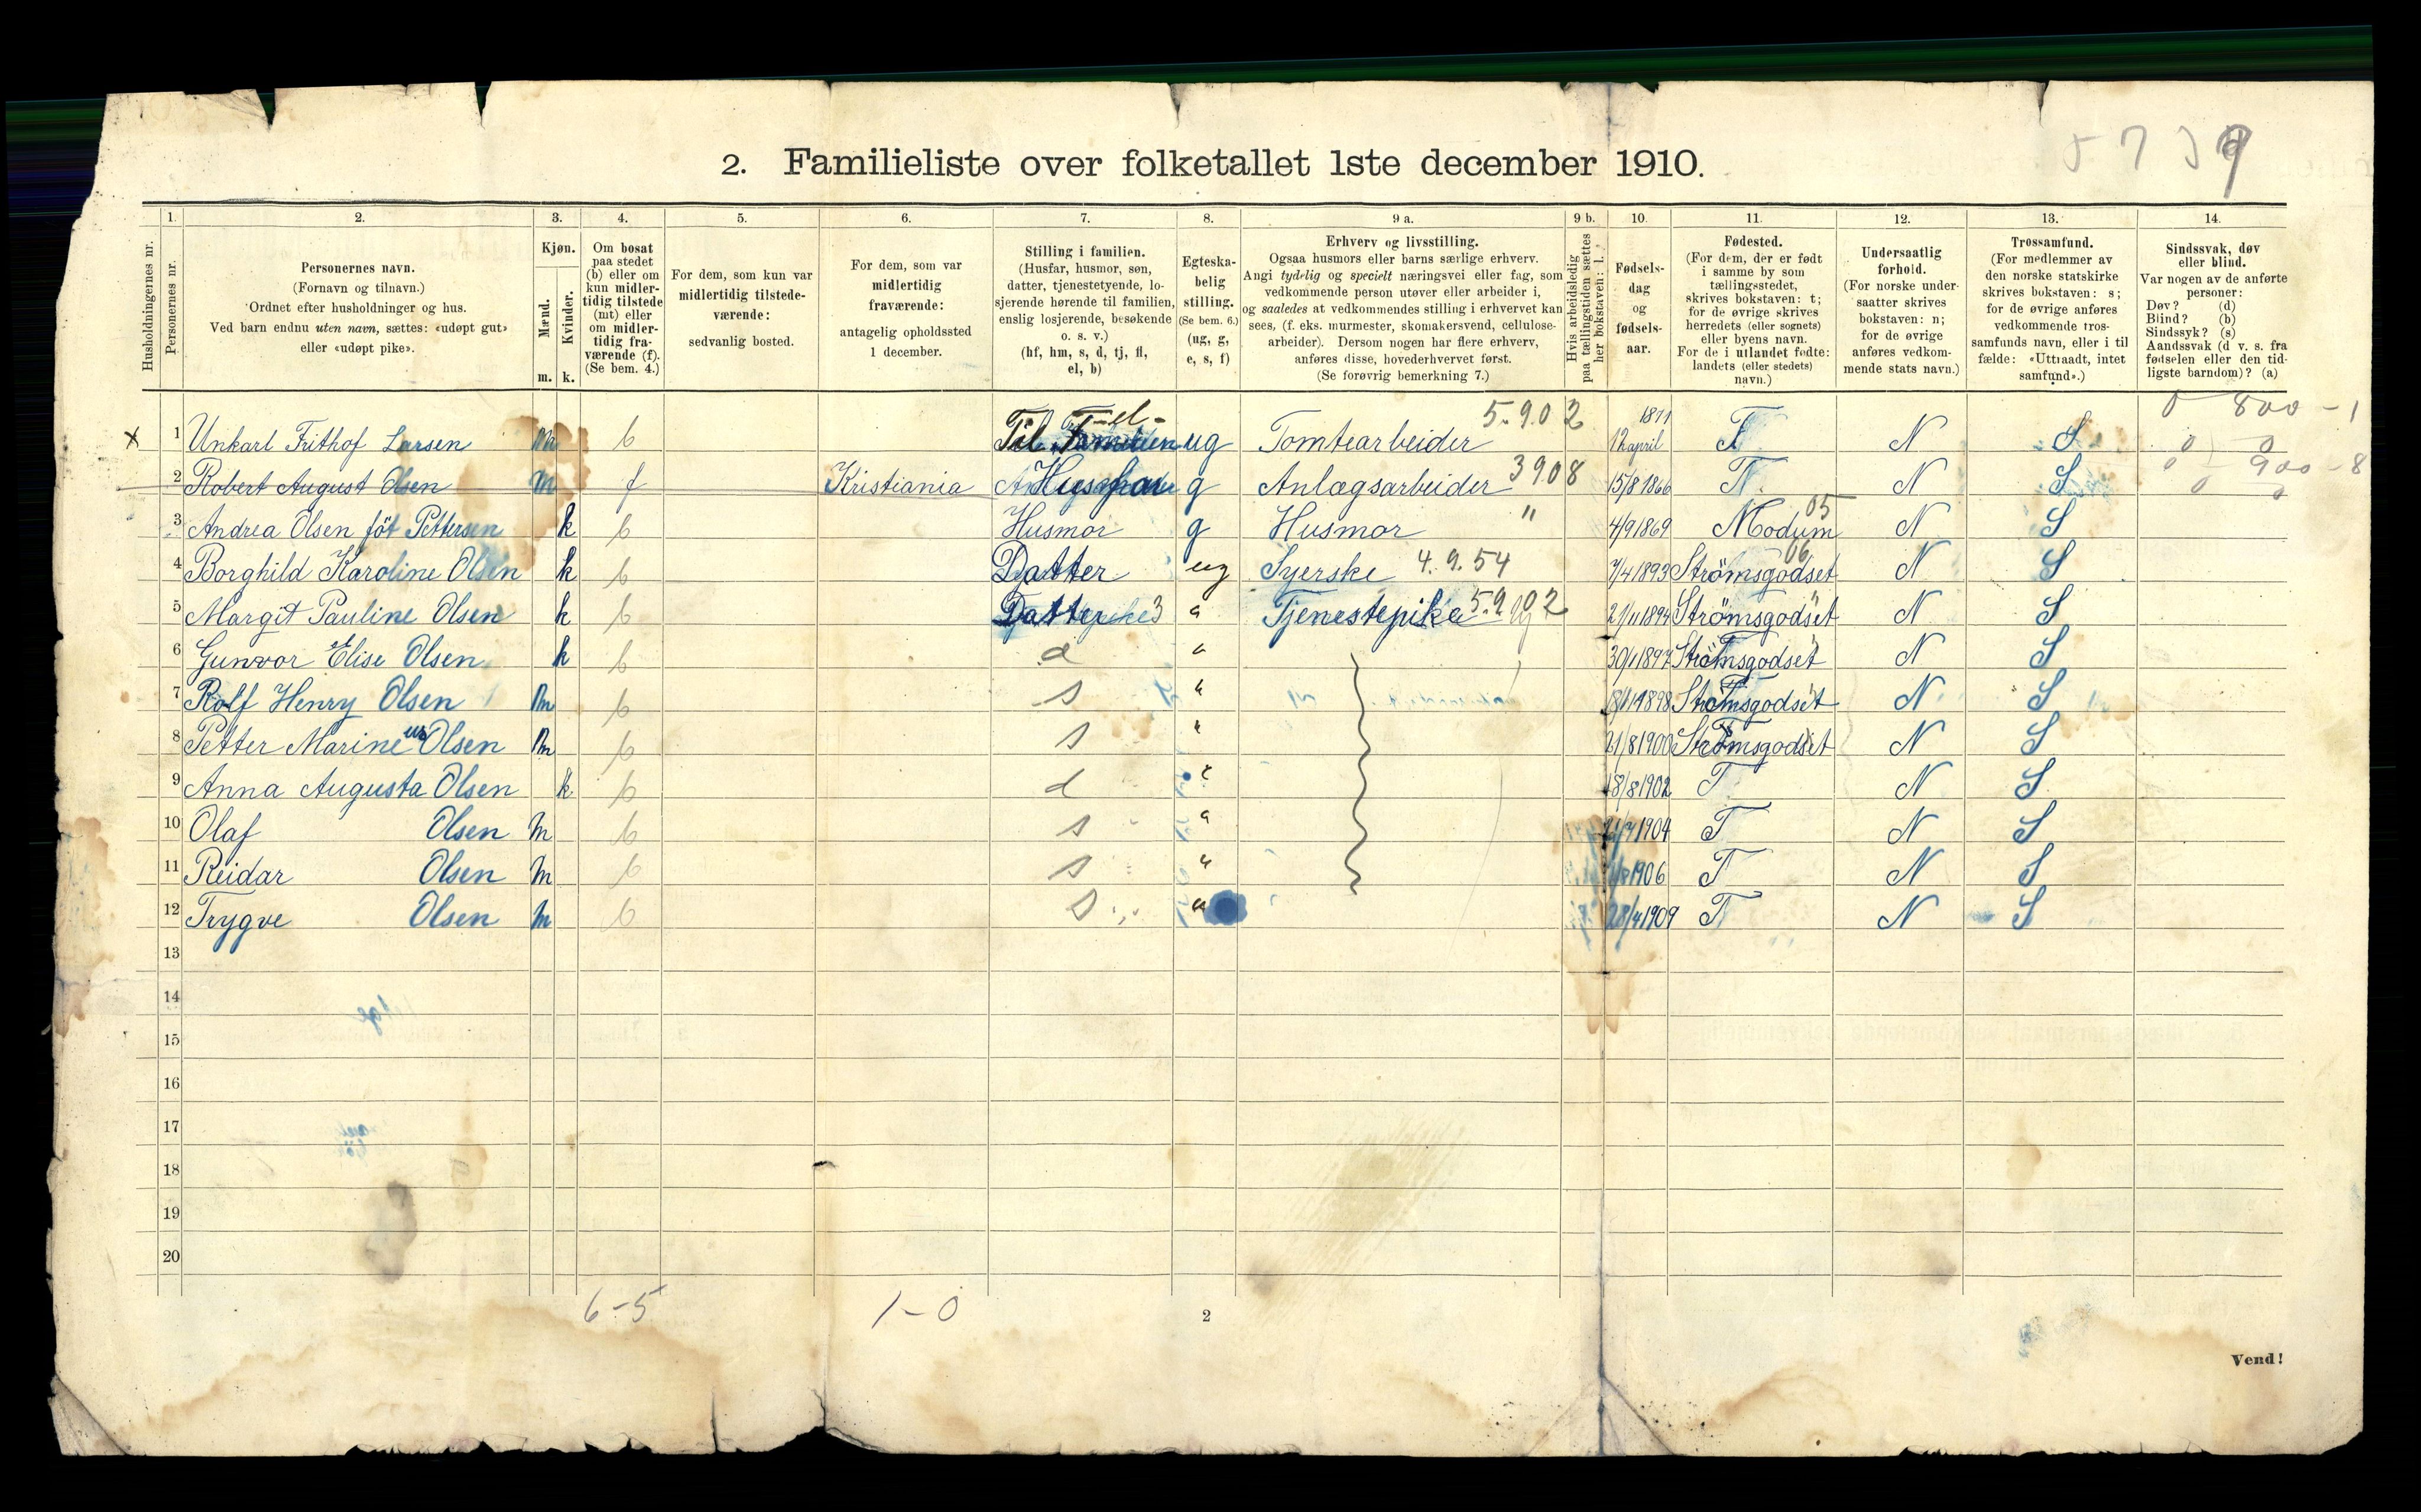 5739
2. Familieliste over folketallet 1ste december 1910.
1. 2. 3. 4. 5. 6. 7. 8. 9 a. 9 b. 10. 11. 12. 13. 14.
Husholdningernes nr.
Personernes nr.
Personernes navn.
(Fornavn og tilnavn.)
Ordnet efter husholdninger og hus.
Ved barn endnu uten navn, sættes: «udøpt gut»
eller «udøpt pike».
Kjøn.
Mænd.
Kvinder.
m. k.
Om bosat
paa stedet
(b) eller om
kun midler-
tidig tilstede
(mt) eller
om midler-
tidig fra-
værende (f).
(Se bem. 4.)
For dem, som kun var
midlertidig tilstede-
værende:
sedvanlig bosted.
For dem, som var
midlertidig
fraværende:
antagelig opholdssted
1 december.
Stilling i familien.
(Husfar, husmor, søn,
datter, tjenestetyende, lo-
sjerende hørende til familien,
enslig losjerende, besøkende
o. s. v.)
(hf, hm, s, d, tj, fl,
el, b)
Egteska-
belig
stilling.
(Se bem. 6.)
(ug, g,
e, s, f)
Erhverv og livsstilling.
Ogsaa husmors eller barns særlige erhverv.
Angi tydelig og specielt næringsvei eller fag, som
vedkommende person utøver eller arbeider i,
og saaledes at vedkommendes stilling i erhvervet kan
sees, (f. eks. murmester, skomakersvend, cellulose-
arbeider). Dersom nogen har flere erhverv,
anføres disse, hovederhvervet først.
(Se forøvrig bemerkning 7.)
Hvis arbeidsledig
paa tællingstiden sættes
her bokstaven: l.
Fødsels-
dag
og
fødsels-
aar.
Fødested.
(For dem, der er født
i samme by som
tællingsstedet,
skrives bokstaven: t;
for de øvrige skrives
herredets (eller sognets)
eller byens navn.
For de i utlandet fødte:
landets (eller stedets)
navn.)
Undersaatlig
forhold.
(For norske under-
saatter skrives
bokstaven: n;
for de øvrige
anføres vedkom-
mende stats navn.)
Trossamfund.
(For medlemmer av
den norske statskirke
skrives bokstaven: s;
for de øvrige anføres
vedkommende tros-
samfunds navn, eller i til
fælde: «Uttraadt, intet
samfund».)
Sindssvak, døv
eller blind.
Var nogen av de anførte
personer:
Døv? (d)
Blind? (b)
Sindssyk? (s)
Aandssvak (d v. s. fra
fødselen eller den tid-
ligste barndom)? (a)
el- 5.902 1871 0 800-1
x 1 Unkarl Frithof Larsen m b Til Familien ug Tomtearbeider 12 april T N S 0 0
2 Robert August Olsen m f Kristiania Husfar g Anlægsarbeider 3908 15/8 1866 T N S 0 900-8
3 Andrea Olsen föt Pettersen k b Husmor g Husmor " 4/9 1869 Modum 05 N S
4 Borghild Karoline Olsen k b Datter ug Syerske 4.9.54 7/4 1893 Strömsgodset 06 N S
5 Margit Pauline Olsen k b Datter " Tjenestepike 5.902 21/11 1894 Strömsgodset N S
6 Gunvor Elise Olsen k b d " 30/1 1897 Strömsgodset N S
7 Rolf Henry Olsen m b s " 1898 Strömsgodset N S
8 Petter Marineus Olsen m b s " 21/8 1900 Strömsgodset N S
9 Anna Augusta Olsen k b d " 18/8 1902 T N S
10 Olaf Olsen m b s " 1904 T N S
11 Reidar Olsen m b s " 1906 T N S
12 Trygve Olsen m b s " 28/4 1909 T N S
13
14
15
16
17
18
19
20
6-5 1-0
2
Vend!